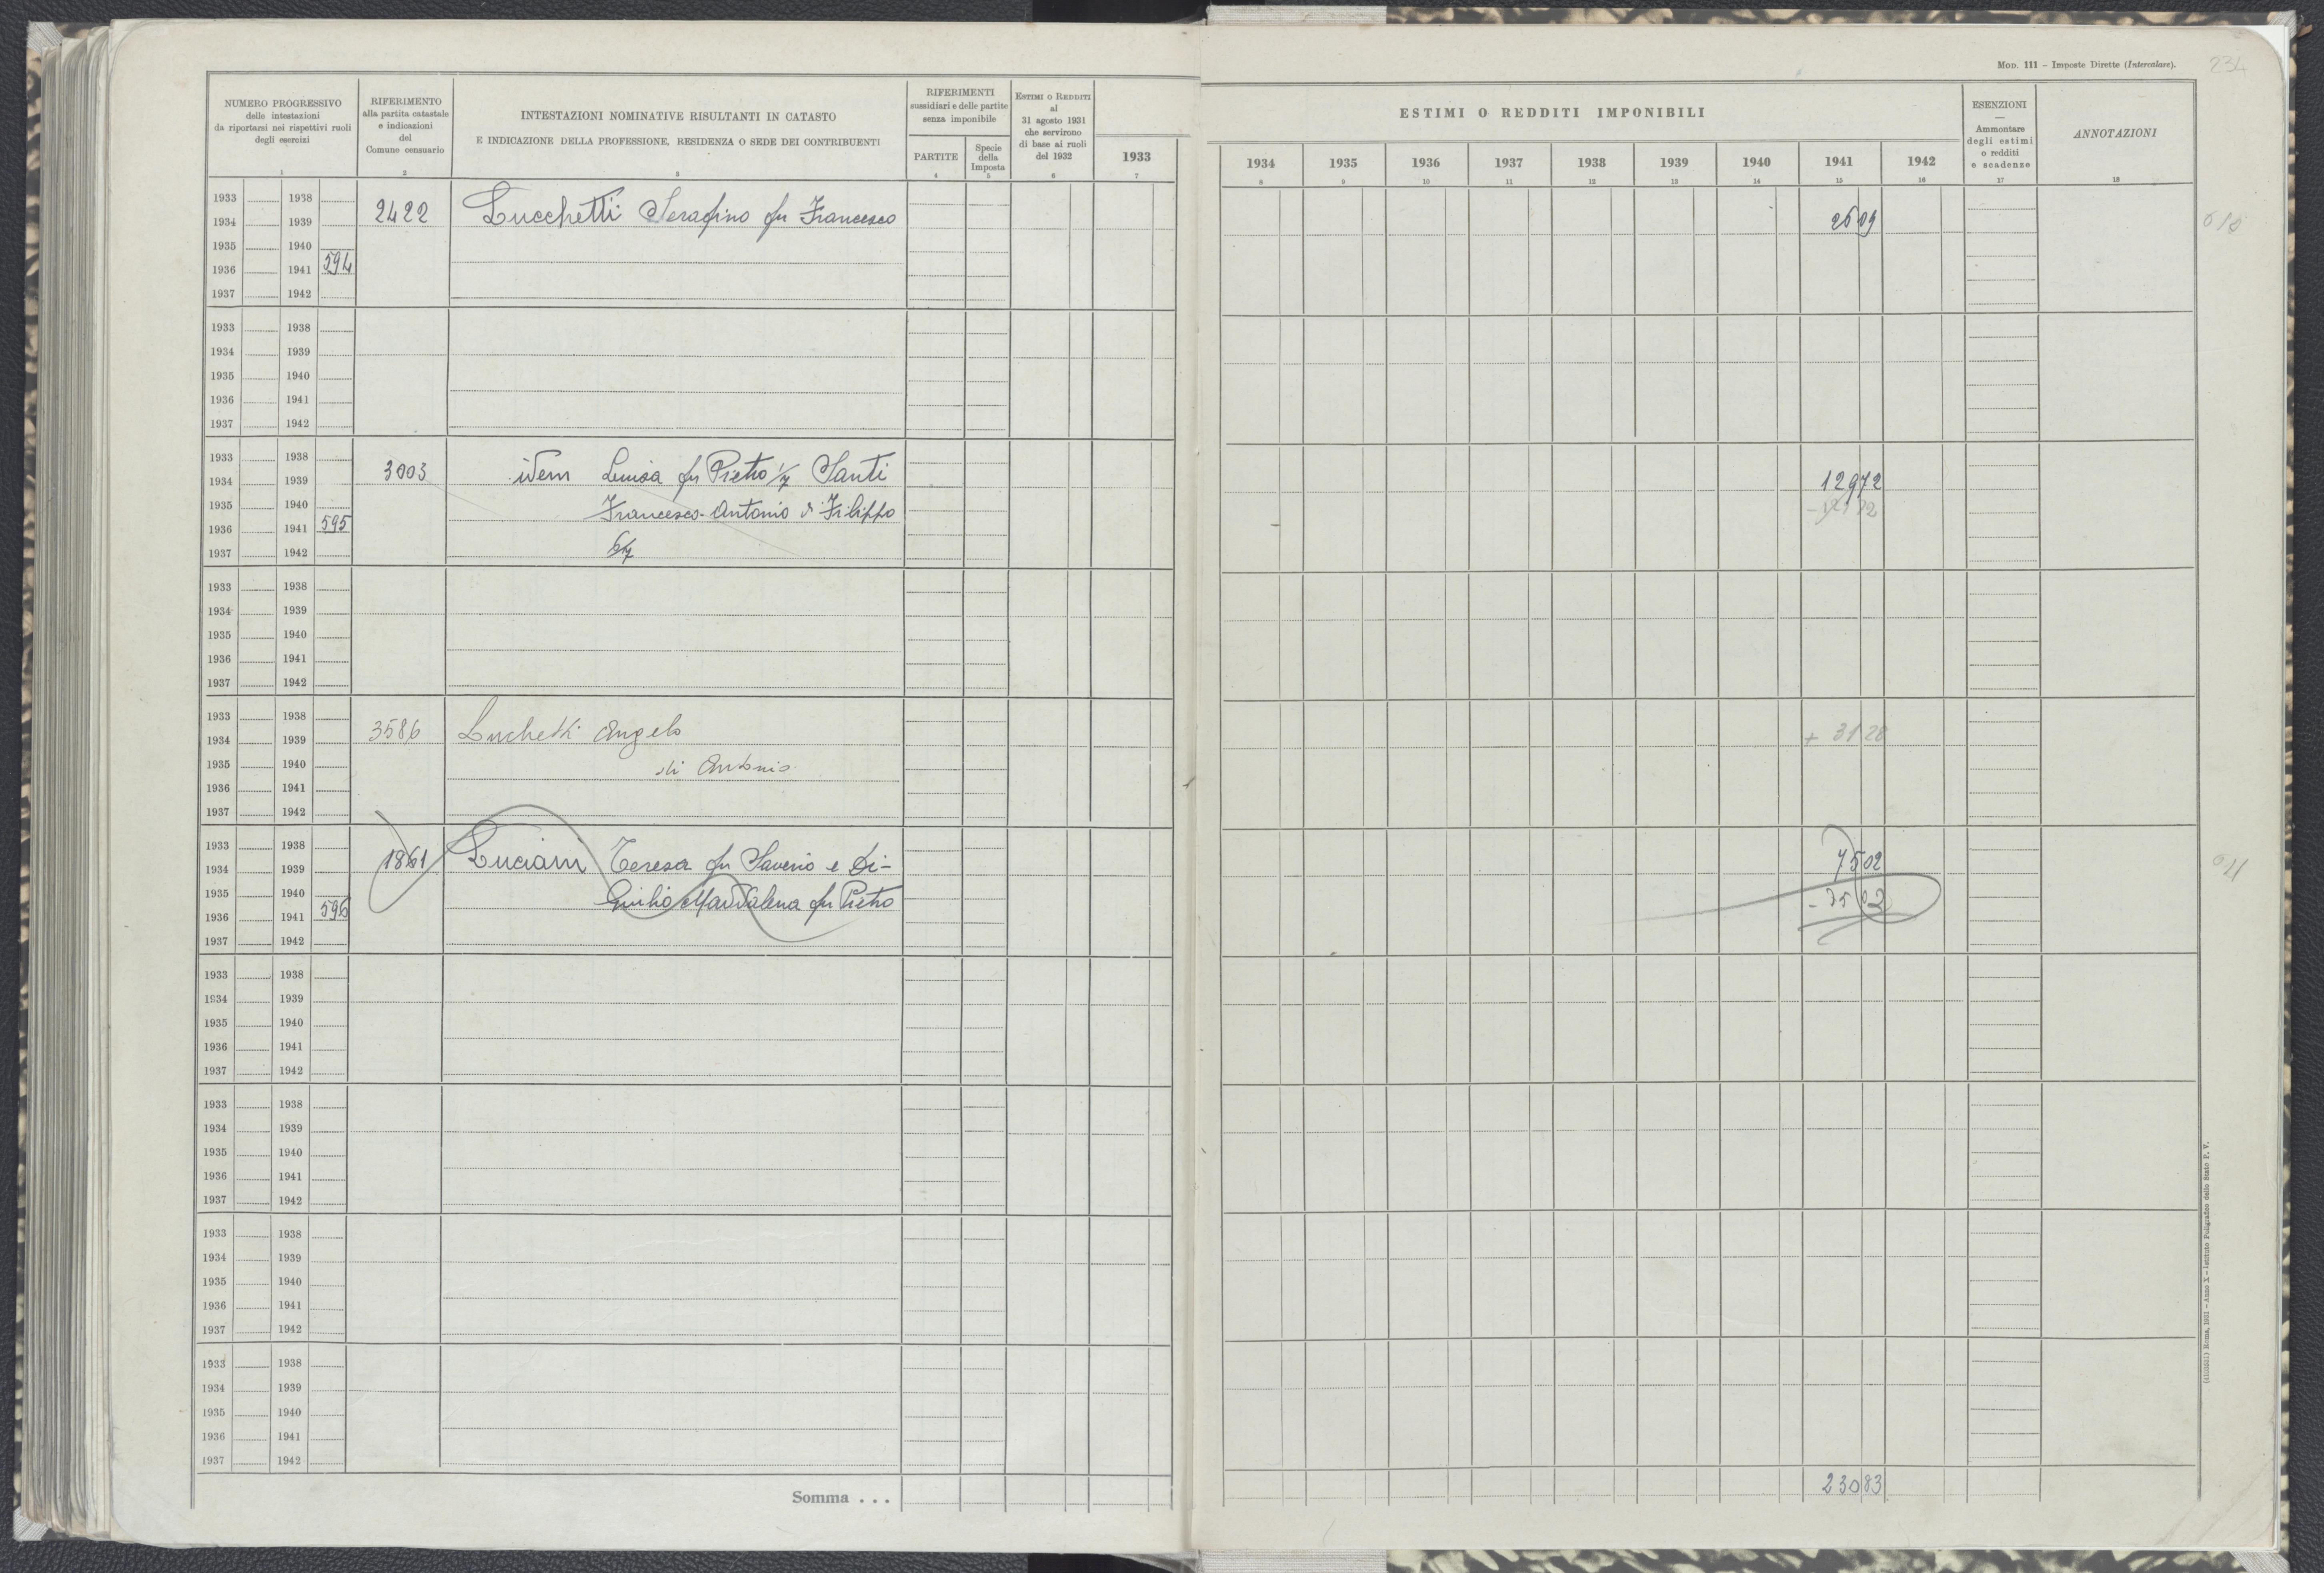 MOD. 111 – Imposte Dirette (Intercalare).
234
NUMERO PROGRESSIVO
delle intestazioni
da riportarsi nei rispettivi ruoli
degli esercizi
1
RIFERIMENTO
alla partita catastale
e indicazioni
del
Comune censuario
2
INTESTAZIONI NOMINATIVE RISULTANTI IN CATASTO
E INDICAZIONE DELLA PROFESSIONE, RESIDENZA O SEDE DEI CONTRIBUENTI
3
RIFERIMENTI
sussidiari e delle partite
senza imponibile
PARTITE
4
Specie
della
Imposta
5
ESTIMI O REDDITI
al
31 agosto 1931
che servirono
di base ai ruoli
del 1932
6
1933
7
ESTIMI O REDDITI IMPONIBILI
1934 1935 1936 1937 1938 1939 1940 1941 1942
8 9 10 11 12 13 14 15 16
ESENZIONI
—
Ammontare
degli estimi
o redditi
e scadenze
17
ANNOTAZIONI
18
1933 1938
1934 1939 2422 Lucchetti Serafino fu Francesco 2609
1935 1940
1936 1941 594
1937 1942
1933 1938
1934 1939
1935 1940
1936 1941
1937 1942
1933 1938
1934 1939 3003 idem Luisa fu Pietro 1/7 Santi 12972
1935 1940 Francesco-Antonio di Filippo
1936 1941 595
1937 1942 6/7
1933 1938
1934 1939
1935 1940
1936 1941
1937 1942
1933 1938
1934 1939 3586 Luchetti Angelo + 3128
1935 1940 di Antonio
1936 1941
1937 1942
1933 1938
1934 1939 1861 Luciani Teresa fu Saverio e Di- 7502
1935 1940 Giulio Maddalena fu Pietro
1936 1941 596
1937 1942
1933 1938
1934 1939
1935 1940
1936 1941
1937 1942
1933 1938
1934 1939
1935 1940
1936 1941
1937 1942
1933 1938
1934 1939
1935 1940
1936 1941
1937 1942
1933 1938
1934 1939
1935 1940
1936 1941
1937 1942
Somma . . . 23083
Roma, 1931 – Anno X – Istituto Poligrafico dello Stato P. V.